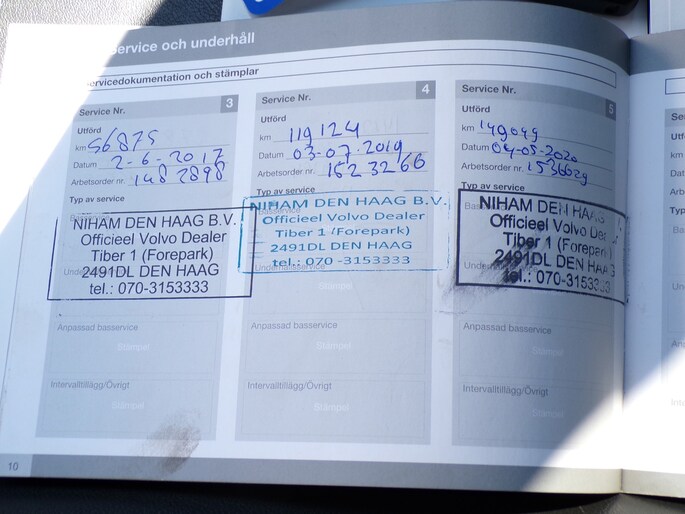 Service och underhåll
Servicedokumentation och stämplar
Service Nr. 3
Utförd
km 56875
Datum 2-6-2017
Arbetsorder nr. 1482898
Typ av service
NIHAM DEN HAAG B.V.
Officieel Volvo Dealer
Tiber 1 (Forepark)
2491DL DEN HAAG
tel.: 070-3153333
Anpassad basservice
Stämpel
Intervalltillägg/Övrigt
Stämpel
Service Nr. 4
Utförd
km 119124
Datum 03-07-2019
Arbetsorder nr. 1523266
Typ av service
NIHAM DEN HAAG B.V.
Officieel Volvo Dealer
Tiber 1 (Forepark)
2491DL DEN HAAG
tel.: 070 -3153333
Underhållsservice
Stämpel
Anpassad basservice
Stämpel
Intervalltillägg/Övrigt
Stämpel
Service Nr. 5
Utförd
km 149049
Datum 04-05-2020
Arbetsorder nr.
Typ av service
NIHAM DEN HAAG
Officieel Volvo Dealer
Tiber 1 (Forepark)
2491DL DEN HAAG
tel.: 070-3153333
Anpassad basservice
Stämpel
Intervalltillägg/Övrigt
Stämpel
10